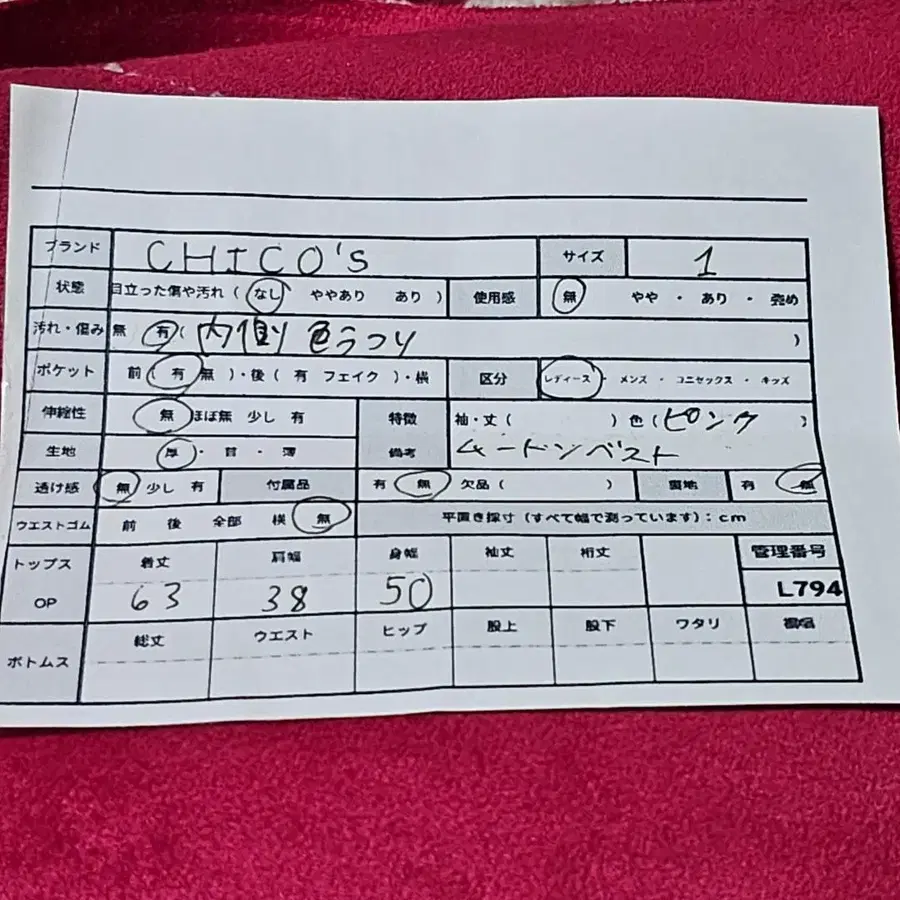 ブランド CHICO's サイズ 1
状態 目立った傷や汚れ ( なし ややあり あり ) 使用感 無 やや ・ あり ・ 強め
汚れ・傷み 無 有 ( 内側 色うつり )
ポケット 前 ( 有 無 )・後 ( 有 フェイク )・横 区分 レディース ・ メンズ ・ ユニセックス ・ キッズ
伸縮性 無 ほぼ無 少し 有 特徴 袖・丈 ( ) 色 ( ピンク )
生地 厚 ・ 普 ・ 薄 備考 ムートンベスト
透け感 無 少し 有 付属品 有 無 欠品 ( ) 裏地 有 無
ウエストゴム 前 後 全部 横 無 平置き採寸 (すべて幅で測っています) : cm
トップス 着丈 肩幅 身幅 袖丈 裄丈 管理番号
OP 63 38 50 L794
ボトムス 総丈 ウエスト ヒップ 股上 股下 ワタリ 裾幅